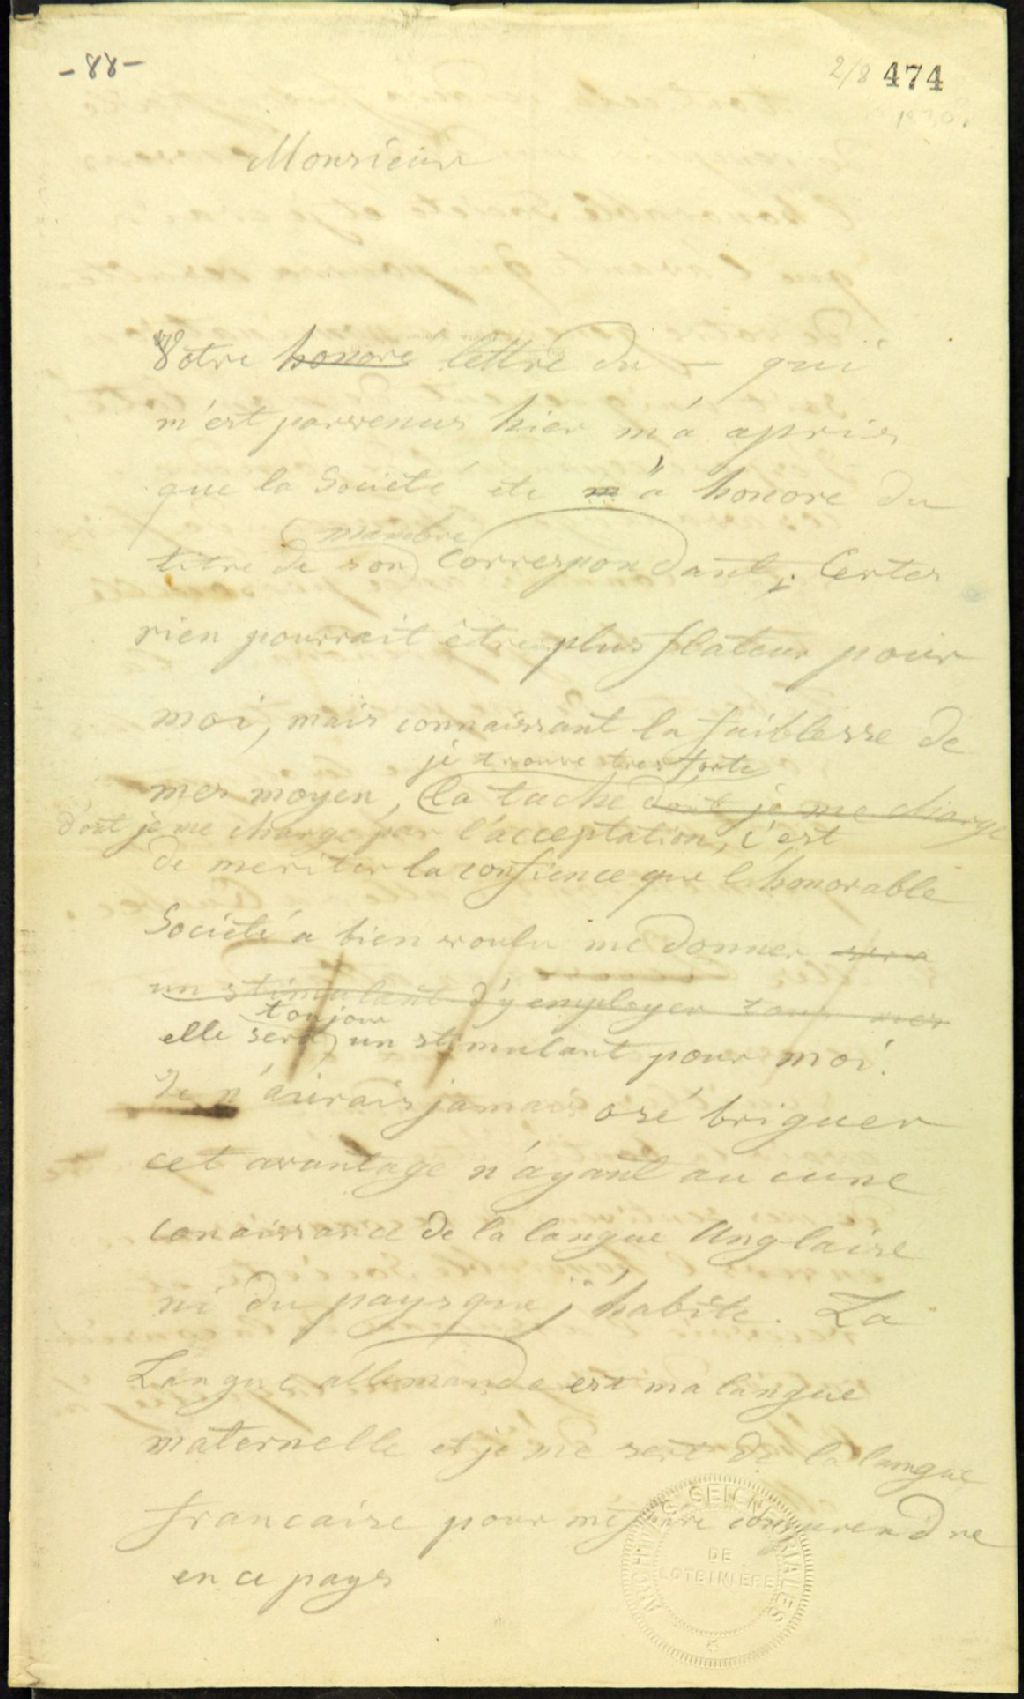 -88-
2/8 474
Monsieur
Votre honore lettre du — qui
m'est parvenus hier m'a apris
que la Société etc m'a honore du
membre
titre de son Correspondant; Certes
rien pourrait être plus flateur pour
moi, mais connaissant la faiblesse de
je trouve tres forte
mes moyen, la tache dont je me charge
dont je me charge par l'acceptation, c'est
de meriter la confience que l'honorable
Société a bien voulu me donner sera
un stimulant d'y employer tous mes
toujour
elle sera un stimulant pour moi.
Je n'aurais jamais osé briguer
cet avantage n'ayant aucune
conaissance de la langue Anglaise
ni du pays que j'habite. La
Langue allemande est ma langue
maternelle et je me sert de la langue
francaise pour me faire comprendre
en ce pays
ARCHIVES SEIGNEURIALES
DE
LOTBINIÈRE